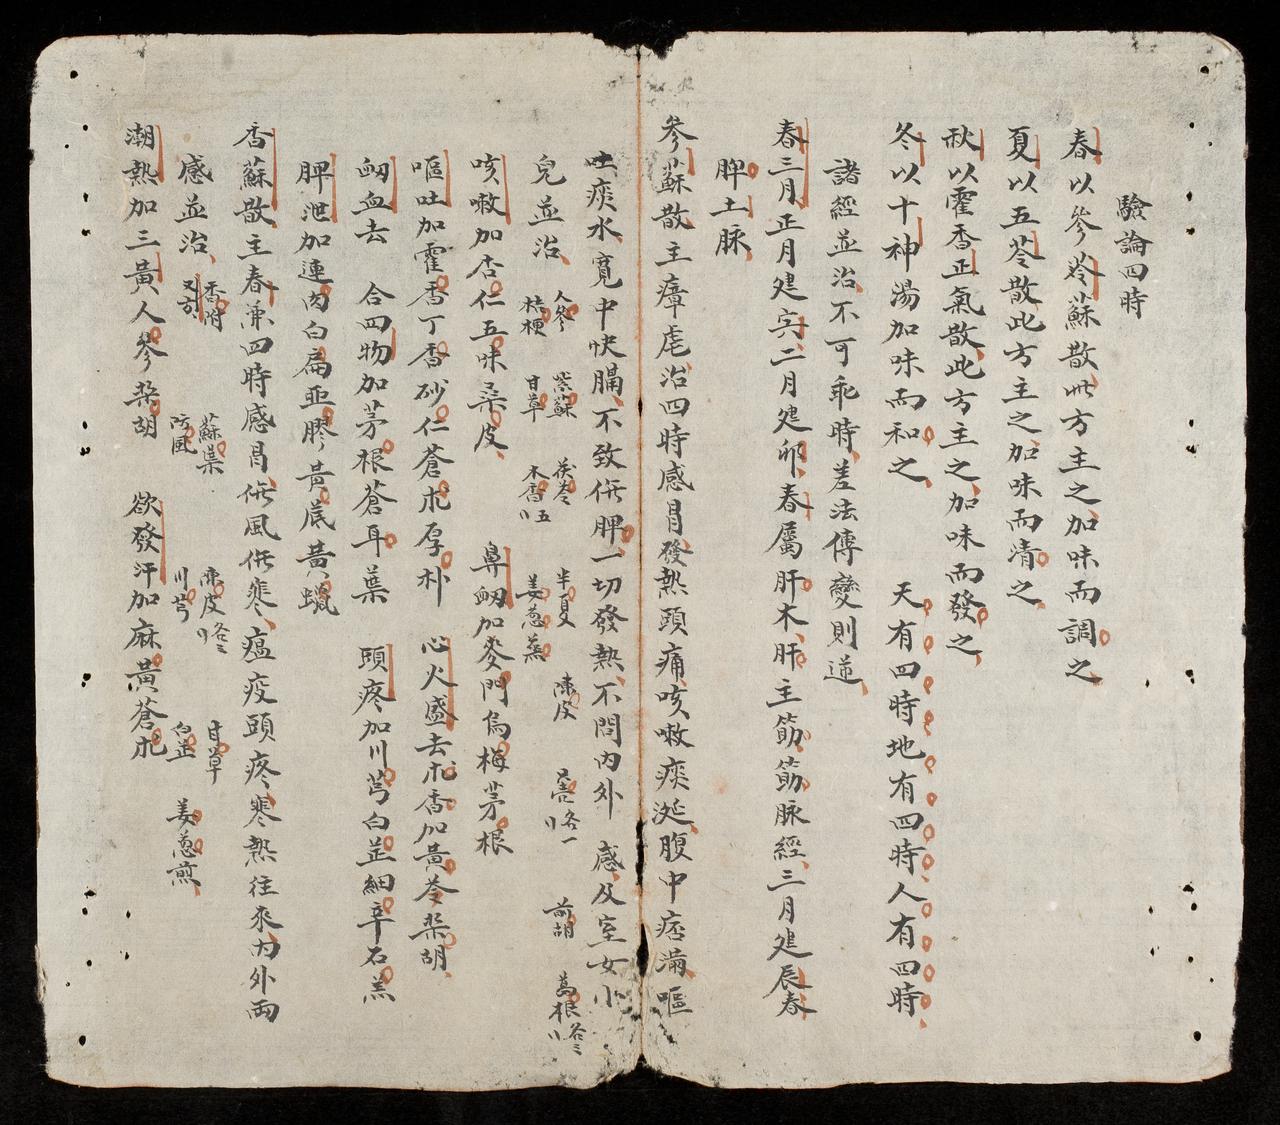 驗論四時
春以參苓蘇散此方主之加味而調之
夏以五苓散此方主之加味而清之
秋以霍香正氣散此方主之加味而發之
冬以十神湯加味而和之 天有四時地有四時人有四時
諸經並治不可乖時差法傳變則逆
春三月正月建寅二月建卯春屬肝木肝主筋筋脉經三月建辰春
脾土脉
參蘇散主瘴瘧治四時感冒發熱頭痛咳嗽痰涎腹中痞滿嘔
吐痰水寬中快膈不致傷脾一切發熱不問內外 感及室女小
兒並治 人參 桔梗 紫蘇 甘草 茯苓 木香 五 半夏 姜葱煎 陳皮 只壳各一 前胡 葛根各二
咳嗽加杏仁五味桑皮 鼻衂加麥門烏梅茅根
嘔吐加霍香丁香砂仁蒼朮厚朴 心火盛去木香加黃芩柴胡
衂血去 合四物加茅根蒼耳葉 頭疼加川芎白芷細辛石羔
脾泄加連肉白扁亞膠黃芪黃蠟
香蘇散主春兼四時感冒傷風傷寒瘟疫頭疼寒熱往來內外兩
感並治 香附 又方 蘇葉 防風 陳皮各二 川芎 甘草 白芷 姜葱煎
潮熱加三黃人參柴胡 欲發汗加麻黃蒼朮